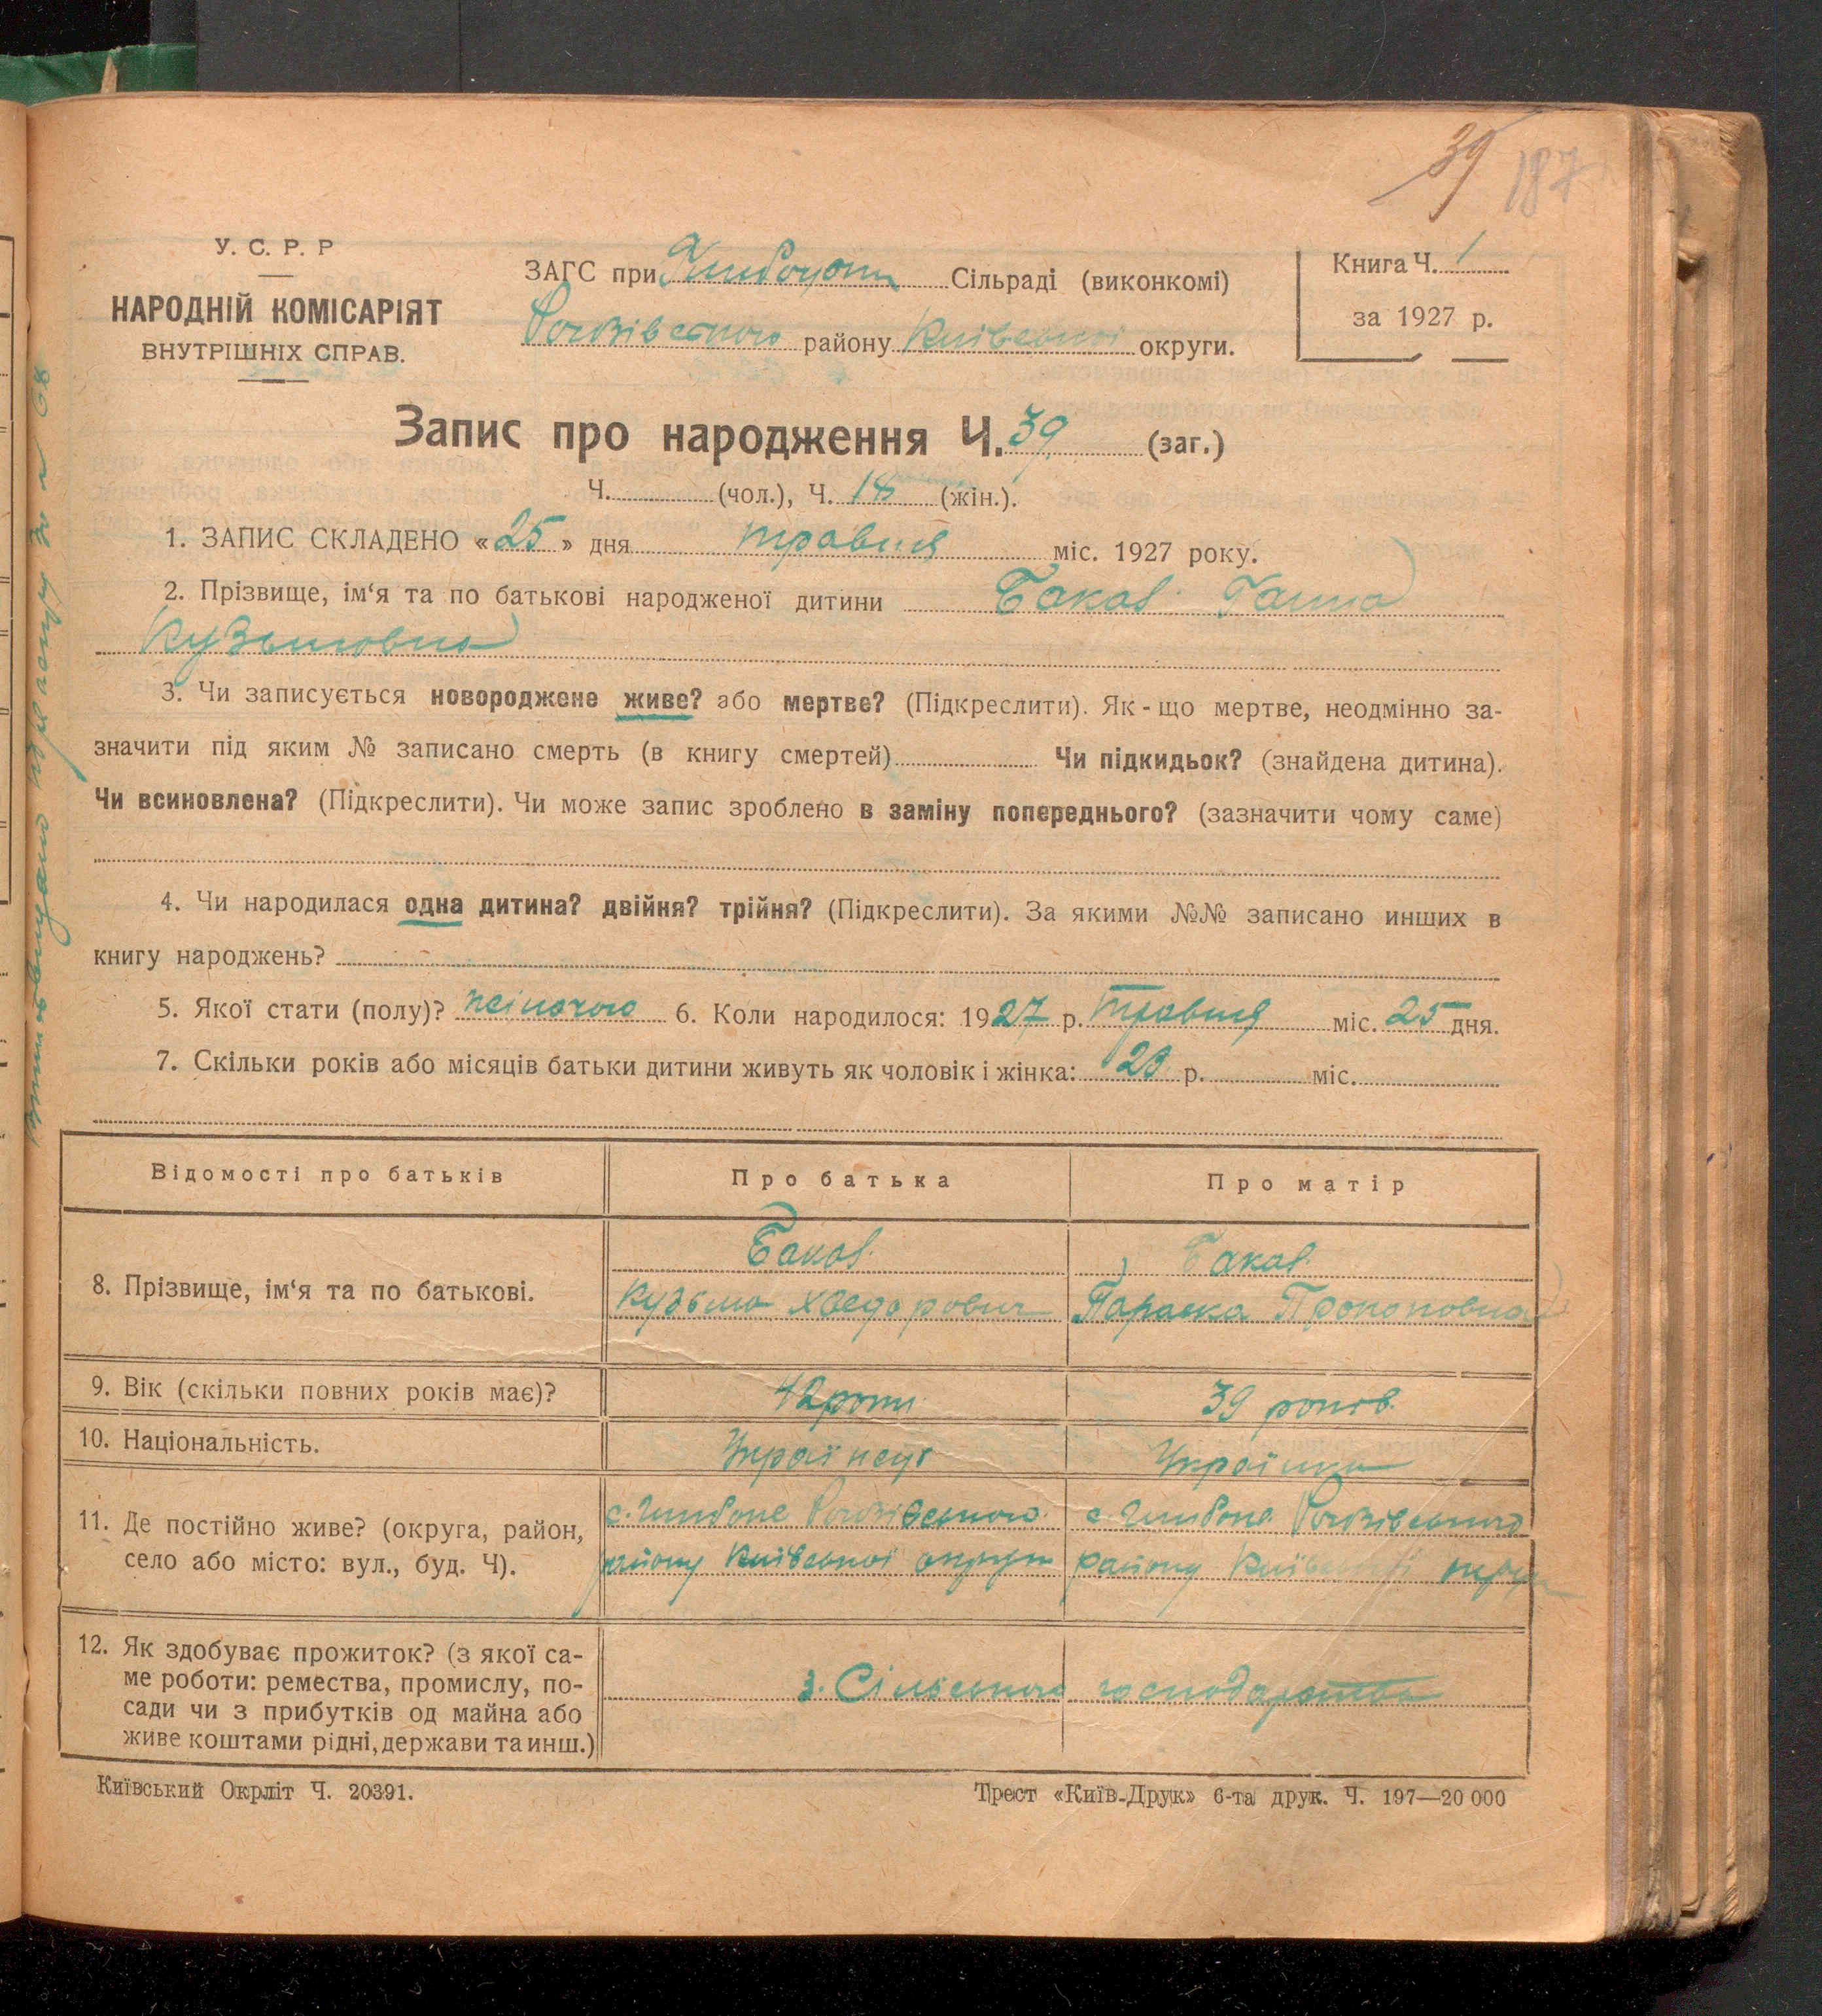 39 187
У. С. Р. Р
НАРОДНІЙ КОМІСАРІЯТ
ВНУТРІШНІХ СПРАВ.
ЗАГС при Сільраді (виконкомі)
району Київської округи.
Книга Ч. 1
за 1927 р.
Запис про народження Ч. 39 (заг.)
Ч. (чол.), Ч. 18 (жін.).
1. ЗАПИС СКЛАДЕНО «25» дня травня міс. 1927 року.
2. Прізвище, ім‘я та по батькові народженої дитини Бакал Ганна
Кузьмовна
3. Чи записується новороджене живе? або мертве? (Підкреслити). Як-що мертве, неодмінно за-
значити під яким № записано смерть (в книгу смертей) Чи підкидьок? (знайдена дитина).
Чи всиновлена? (Підкреслити). Чи може запис зроблено в заміну попереднього? (зазначити чому саме)
4. Чи народилася одна дитина? двійня? трійня? (Підкреслити). За якими №№ записано инших в
книгу народжень?
5. Якої стати (полу)? жіночою 6. Коли народилося: 1927 р. травня міс. 25 дня.
7. Скільки років або місяців батьки дитини живуть як чоловік і жінка: 20 р. міс.
Відомості про батьків Про батька Про матір
8. Прізвище, ім‘я та по батькові.
Бакал Бакал
Кузьма Хведорович Параска Прокоповна
9. Вік (скільки повних років має)? 42 роки 39 років.
10. Національність. Українець Українка
11. Де постійно живе? (округа, район,
село або місто: вул., буд. Ч).
району Київської округи району Київської округи
12. Як здобуває прожиток? (з якої са-
ме роботи: ремества, промислу, по-
сади чи з прибутків од майна або
живе коштами рідні, держави та инш.)
з. Сільського господарства
Київський Окрліт Ч. 20391.
Трест «Київ-Друк» 6-та друк. Ч. 197—20 000